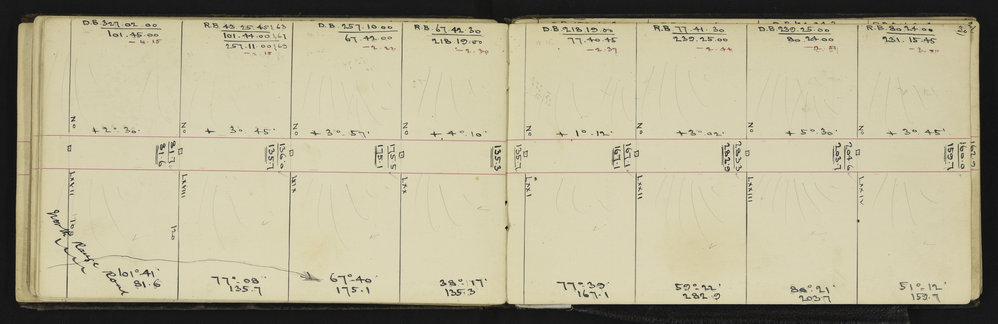 D.B. 327.02.00
101.45.00
- 4.15
R.B. 43.25.45
101.44.00
257.11.00
D.B. 257.10.00
67.42.00
R.B. 67.42.30
218.19.00
D.B. 218.19.00
77.40.45
- 2.37
R.B. 77.41.30
239.25.00
D.B. 239.25.00
80.24.00
R.B. 80.24.00
231.15.45
No
+ 2°.30'
No
+ 3°.45'
No
+ 3°.57'
No
+ 4°.10'
No
+ 1°.12'
No
+ 3°.02'
No
+ 5°.30'
No
+ 3°.45'
81.7
81.6
136.0
135.7
175.5
175.1
135.3
135.7
167.1
167.1
283.3
282.9
204.6
203.7
162.9
160.0
159.7
LXVII
LXVIII
LXIX
LXX
LXXI
LXXII
LXXIII
LXXIV
100
120
North Range Road
101°.41'
81.6
77°.08'
135.7
67°.40'
175.1
38°.17'
135.3
77°.39'
167.1
59°.22'
282.9
38°.21'
203.7
51°.12'
159.7